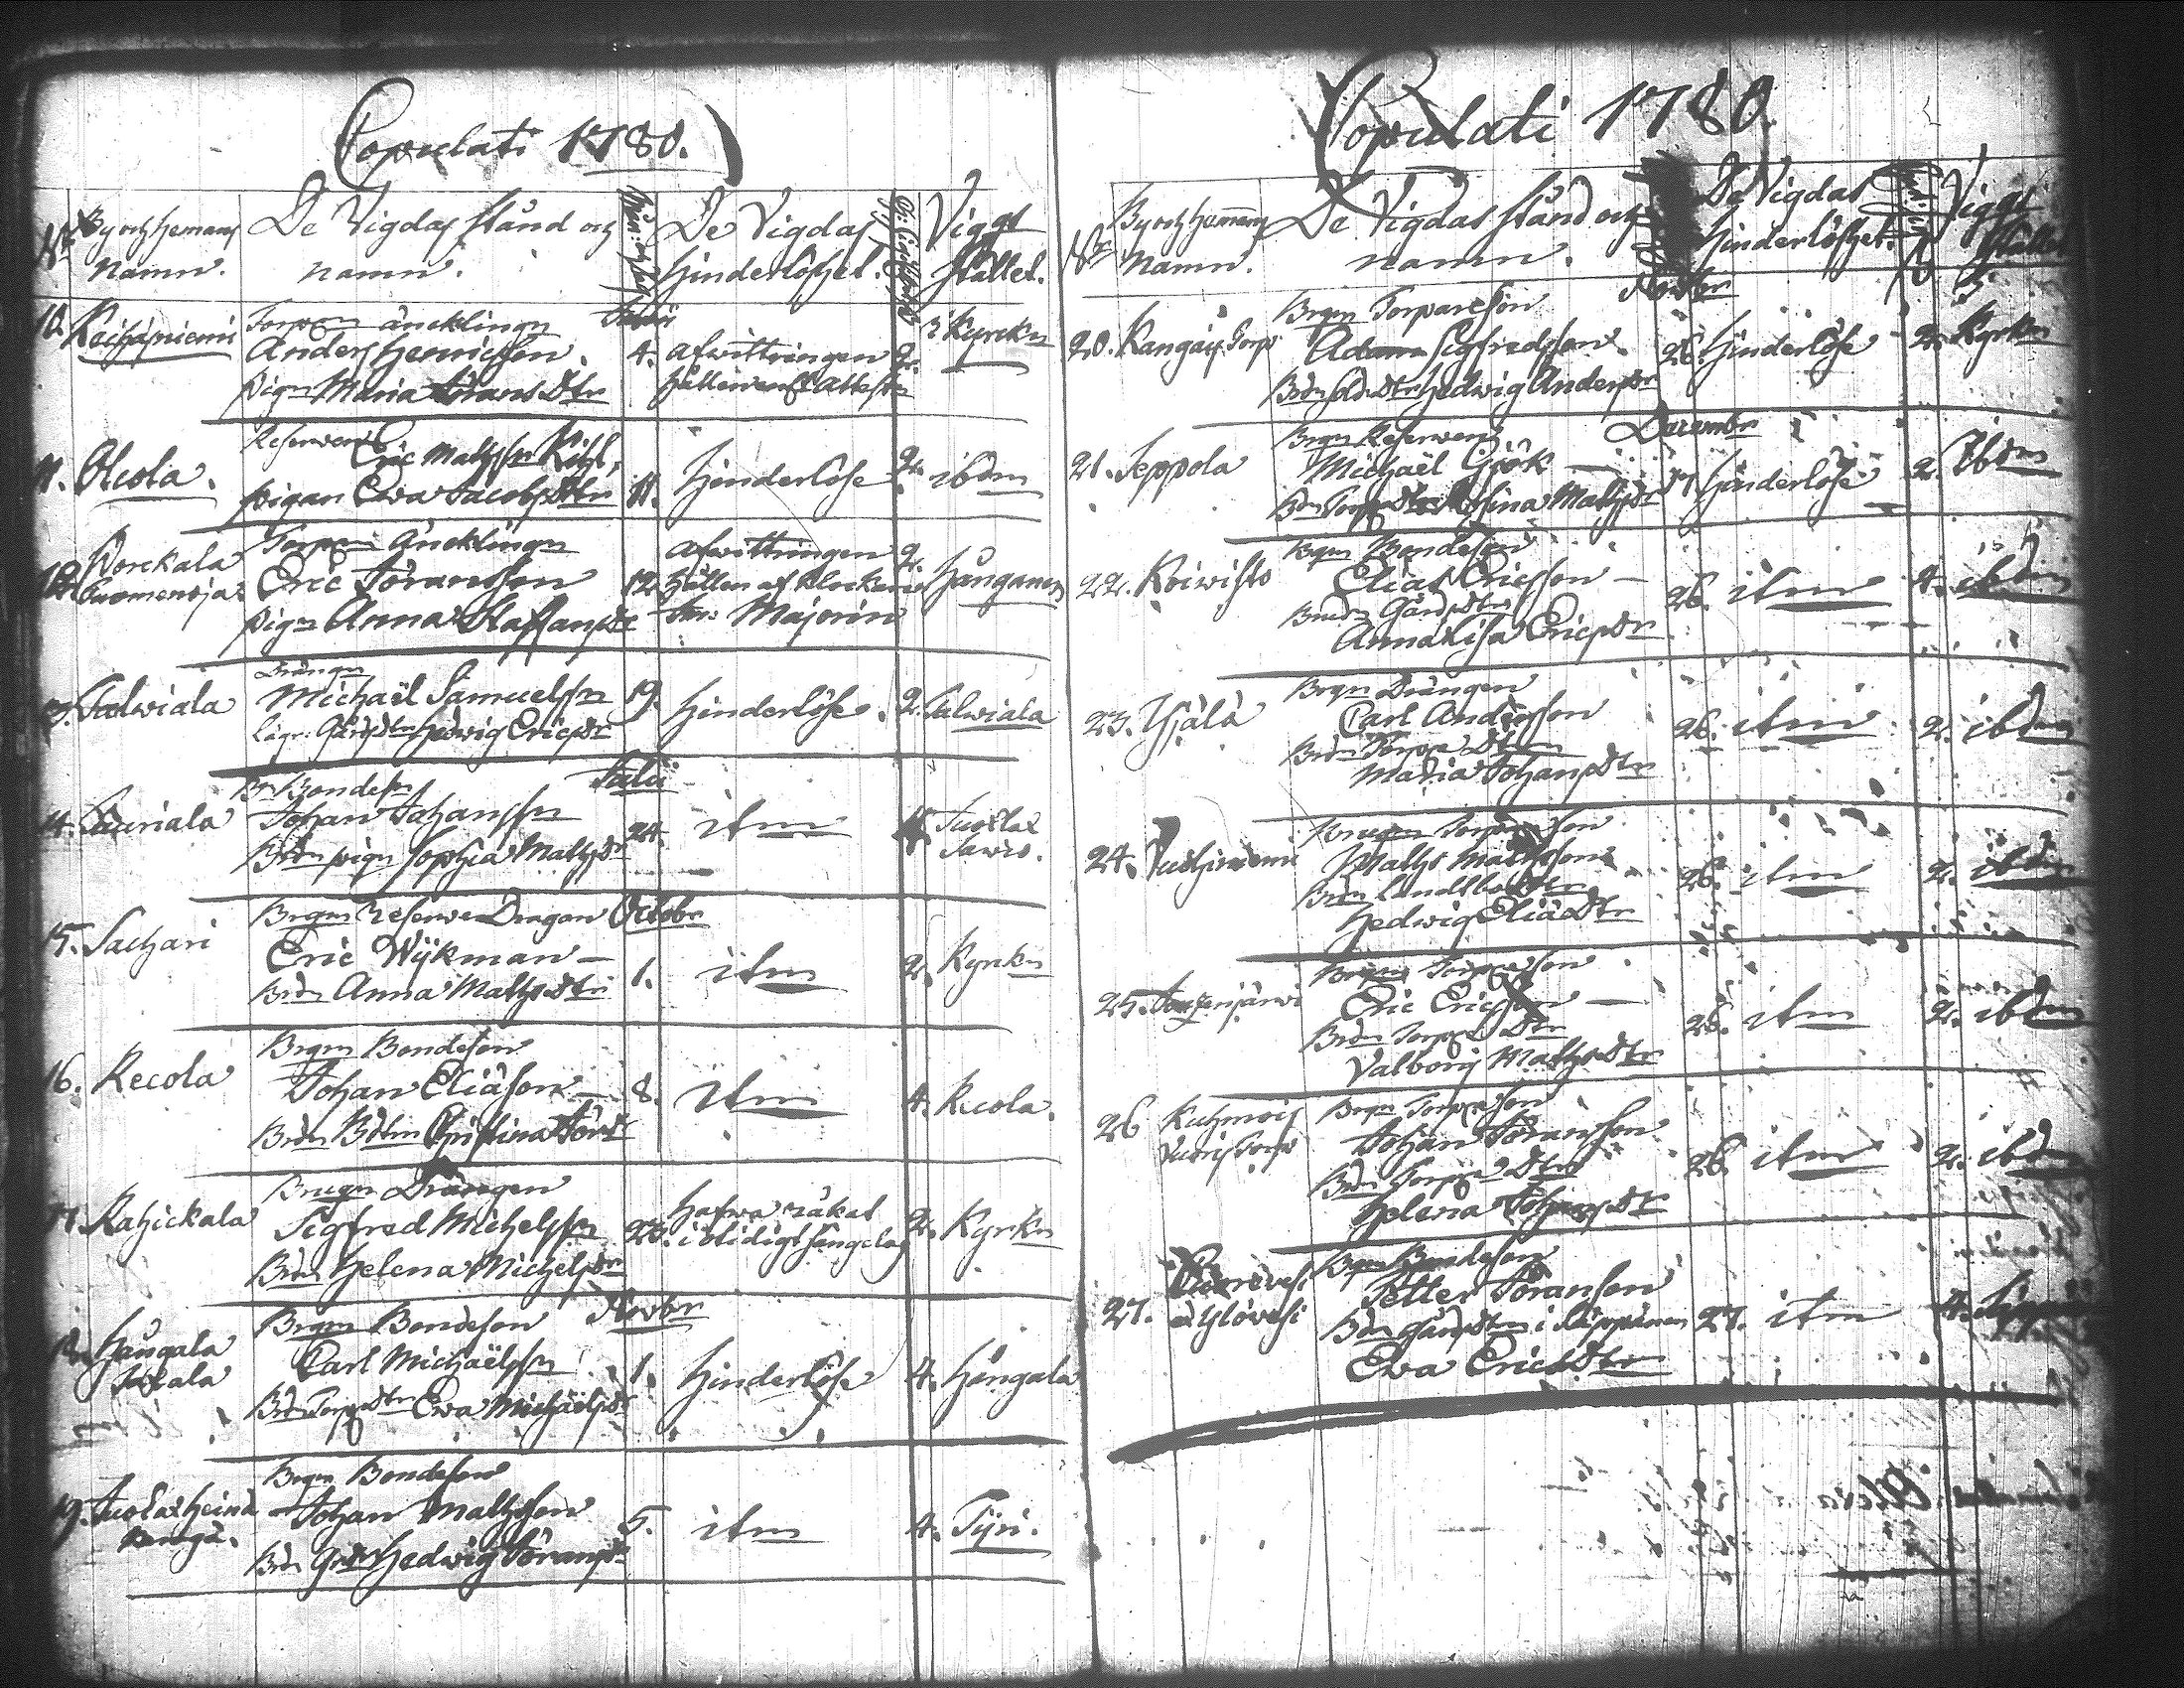 Copulati 1780.
No
By och Hemans
Namn.
De Vigdas stånd och
namn.
De Vigdas
hinderlöshet.
Vigsl
stället.
10. Keihäniemi
Torparen äncklingn
Anders Henricsson.
Pign Maria Görans Dtr
4. afwittringen
hållen enligt attest
2. i Kyrckn
11. Alcola.
Reserven
Eric Matsson Kihl,
pigan Ewa Jacobs Dtr
11. hinderlöse
2. ibdm
12. Korckala
Suomenoja
Torparen Äncklingn
Eric Göransson
Pign Anna Staffansdr
12. afwittringen
hållen af Klockaren
Majorin
2. Hånganen
13. Talwiala
Drängn
Michaël Samuelssn
lägr. Gårdsdtrn Hedwig Ericsdr
19. hinderlöse.
2. Talwiala
14. Lauriala
Br. Bondesn
Johan Johanssn
Brdn pign Sophia Matsdr
Julii
24. itm
4. Tuostas
15. Sachari
Brgm Reserve Dragon
Eric Wijkman
Brdn Anna Mats Dtr
Octobr
1. itm
2. Kyrkn
16. Recola
Brgm Bondeson
Johan Eliäson
Brdn Bdtrn Christina Görsdr
8. itm
4. Recola.
17. Rahickala
Brugm Drängen
Sigfred Michelssn
Brdn Helena Michelsdr
23. hafwa råkat
i otidigt sängelag
2. Kyrkn
18. Hångala
Brgm Bondeson
Carl Michaëlssn
Brdn Torp Dtr Ewa Michaëlsdr
Novbr
1. hinderlöse
4. Hångala
19.
Brgm Bondeson
Johan Mathsson
Brdn Hedwig Göransdr
5. itm
4. Tyri.
Copulati 1780.
No
By och Hemans
Namn.
De Vigdas stånd och
namn.
De Vigdas
hinderlöshet.
Vigsl
stället
20. Kangais Torp
Brgm Torpareson
Adam Sigfredsson
Brdn Sold Dtr Hedwig Andersdr
Novbr
26. hinderlöse
2. Kyrkn
21. Seppola
Brgm Reserven
Michaël Giök
Brdn Torp Dtr Stina Matsdr
Decembr
17 hinderlöse
2. Ibdm
22. Koiwisto
Brgm Bondeson
Elias Ericsson
Brudn Gårds Dtr
Anna Lisa Ericsdr
26. itm
4. ibdm
23. Yijälä
Brgm Drängen
Carl Andersson
Brdn Torpare Dtrn
Maria Johans Dtr
26. itm
2. ibdm
24.
Brugm Torpareson
Maths Mathsson
Brdn
Hedwig Eliä Dtr
26. itm
2. ibdm
25.
Brgm Torpareson
Eric Ericsson
Brdn Torpare Dtr
Valborg Maths Dtr
26. itm
2. ibdm
26 Kuhmois
Brgm Torpareson
Johan Göranson
Brdn Torpare Dtr
Helena Johansdr
26. itm
2. ibdm
27.
Brgm Bondeson
Petter Göranson
Brdn Gårdsdtrn i Säppänen
Ewa Erichs Dtr
27. itm
4.